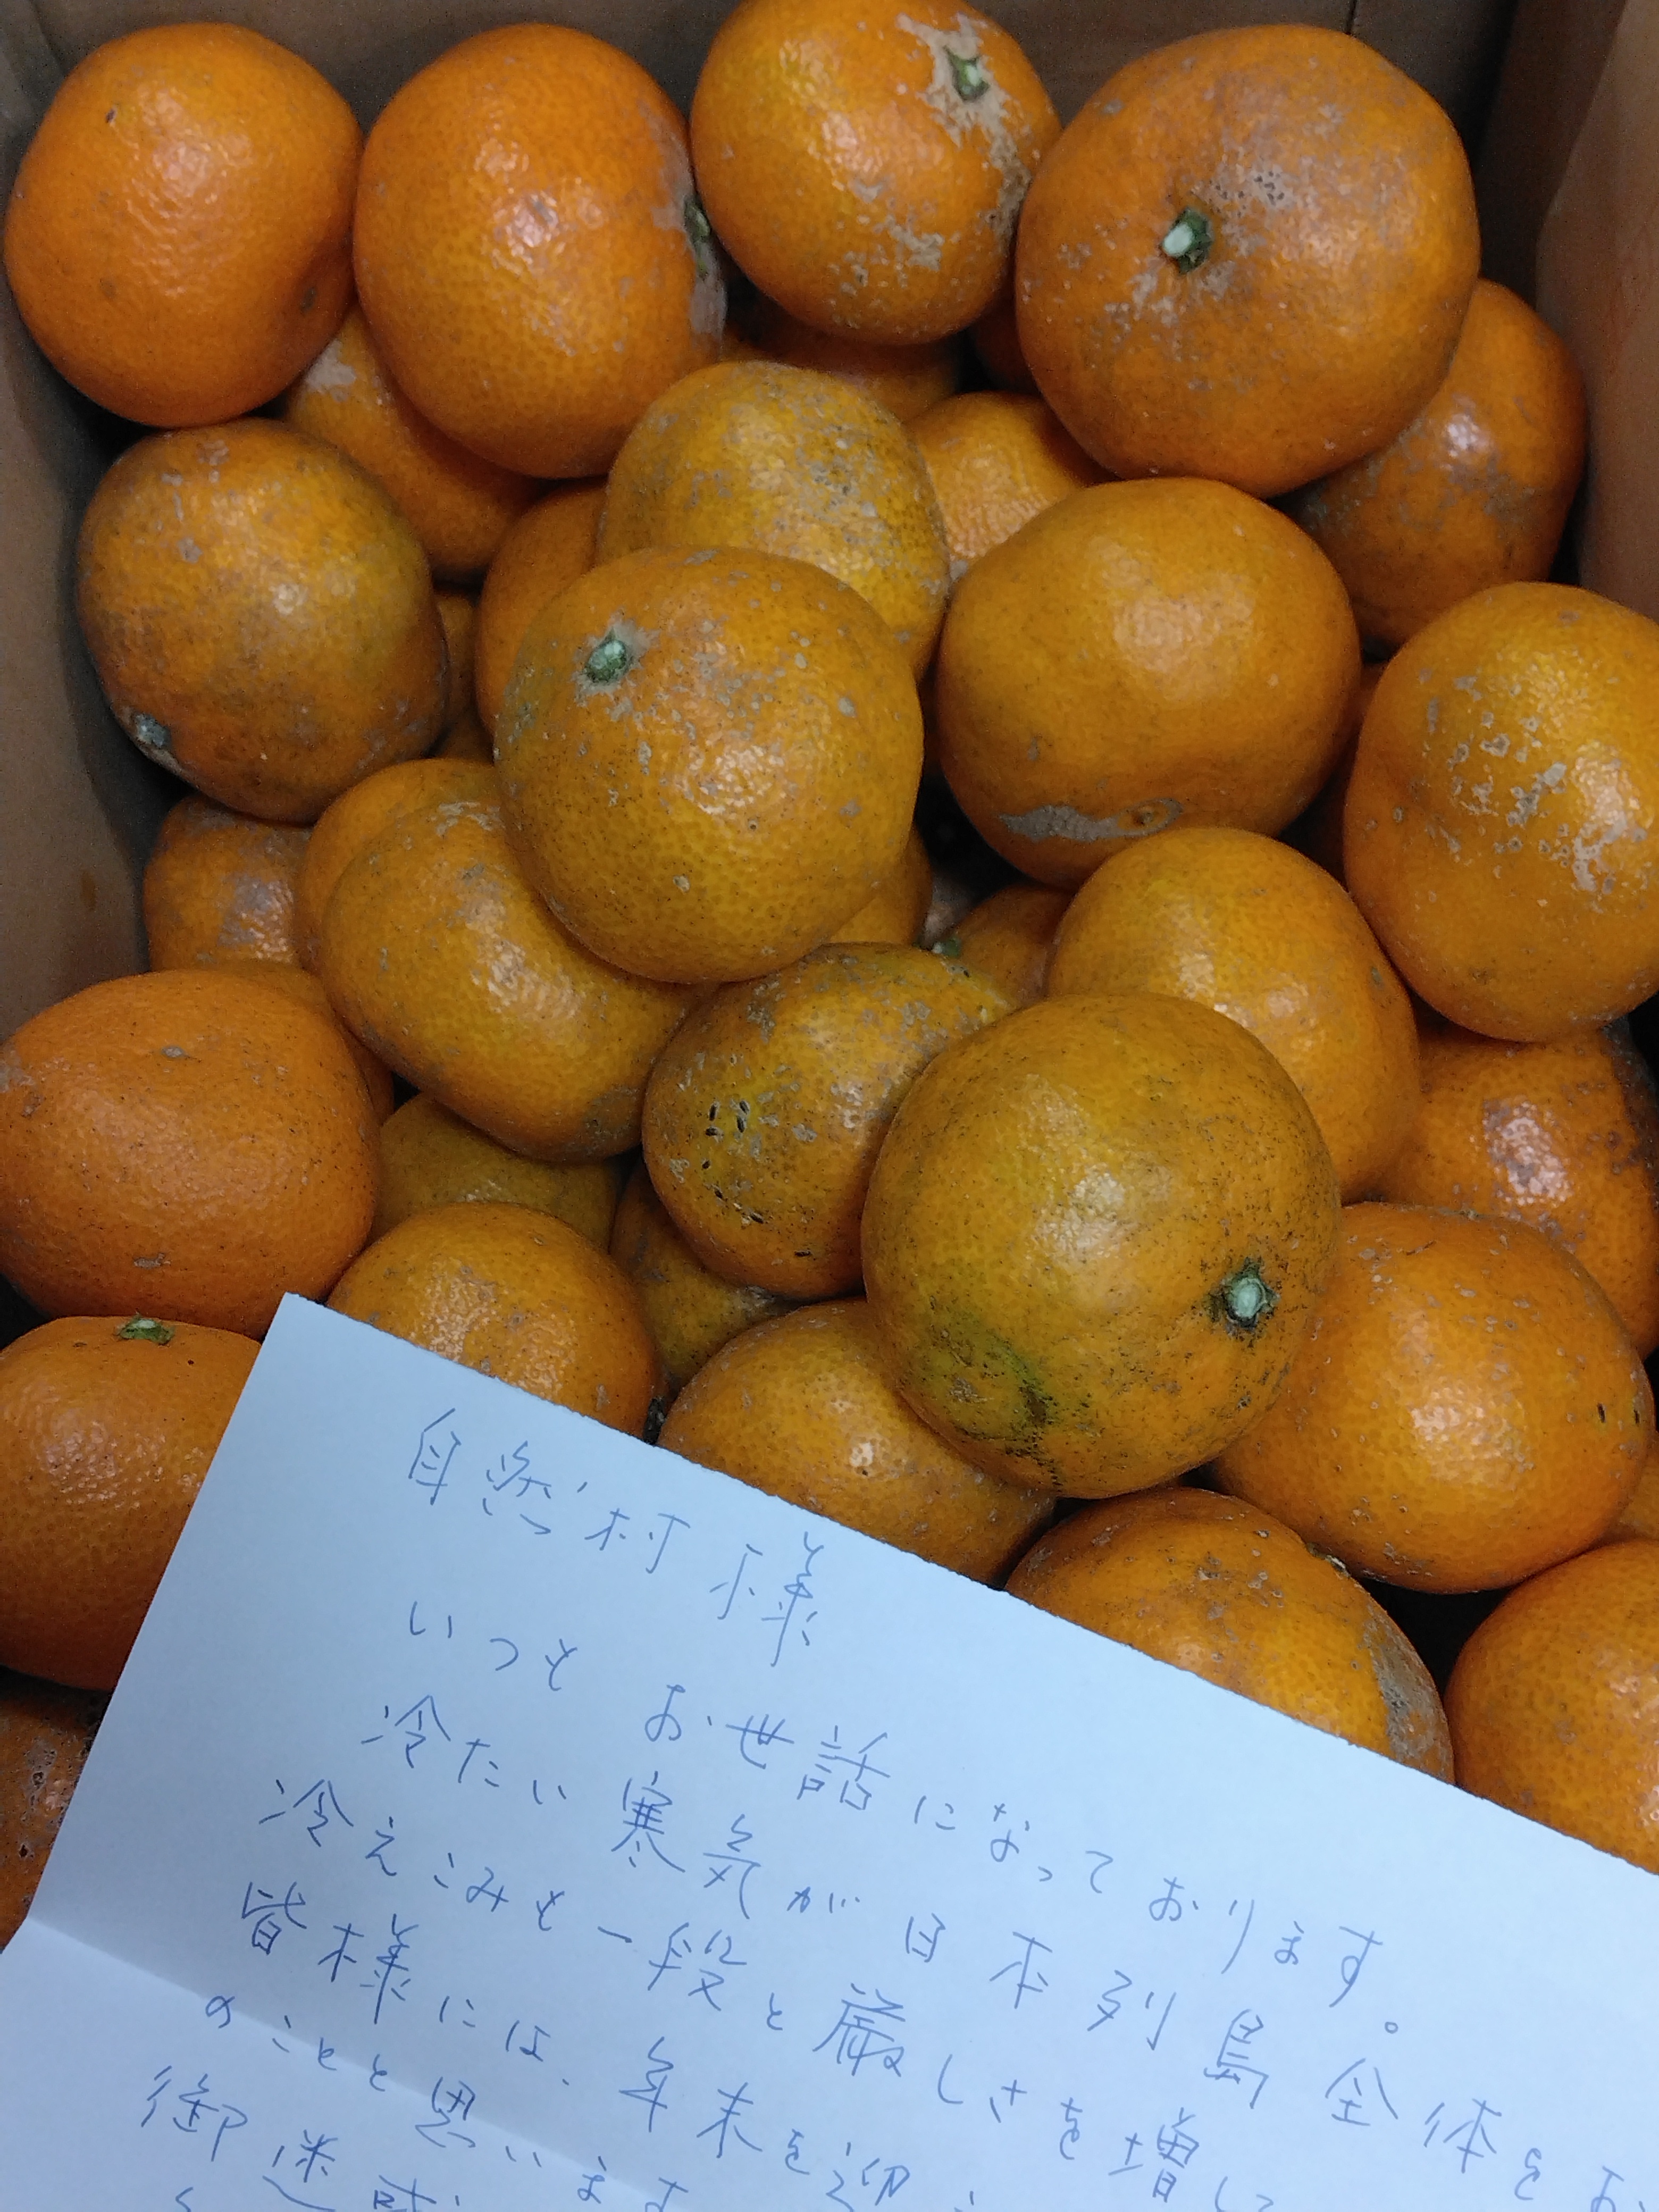 自然村様
いつもお世話になっております。
冷たい寒気が日本列島全体をお
冷えこみも一段と厳しさを増し
皆様には、年末を迎
のことと思います
御迷惑